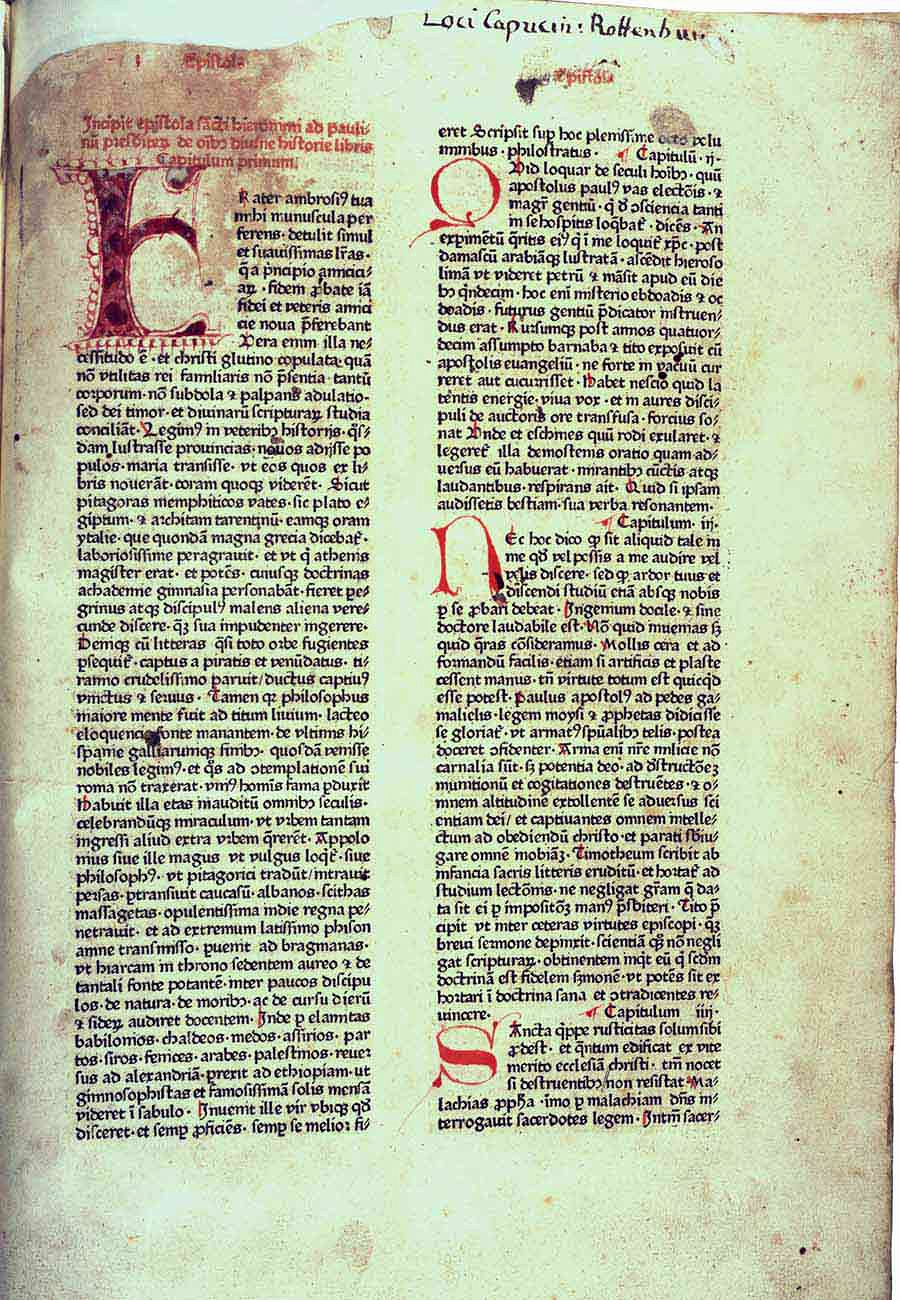 Loci Capucin: Rottenbur
Epistola
Epistola
Incipit epistola sācti hieronimi ad Pauli⸗
nū presbiteꝝ de oībꝰ diuine historie libris
Capitulum primum.
FRater ambrosiꝰ tua
mihi munuscula per
ferens· detulit simul
et suauissimas lr̄as·
q̄ a pncipio amicici⸗
aꝝ· fidem ꝓbate iā
fidei et veteris amici
cie noua p̄ferebant
Vera enim illa ne⸗
cessitudo ē· et christi glutino copulata· quā
nō vtilitas rei familiaris nō p̄sentia tantū
corporum· nō subdola ⁊ palpans adulatio·
sed dei timor· et diuinaꝝ scripturaꝝ studia
conciliāt· Legimꝰ in veteribꝰ historijs· qͦs⸗
dam lustrasse prouincias· nouos adijsse po
pulos· maria transisse· vt eos quos ex li⸗
bris nouerāt· coram quoqꝫ viderēt· Sicut
pitagoras memphiticos vates· sic plato e⸗
giptum· ⁊ architam tarentinū· eamqꝫ oram
ytalie· que quondā magna grecia dicebat̄·
laboriosissime peragrauit· et vt q̄ athenis
magister erat· et potēs· cuiusqꝫ doctrinas
achademie gimnasia personabāt· fieret pe⸗
grinus atqꝫ discipulꝰ malens aliena vere⸗
cunde discere· qͣꝫ sua impudenter ingerere·
Deniqꝫ cū litteras qͣsi toto orbe fugientes
ꝑsequit̄· captus a piratis et venūdatus· ti⸗
ranno crudelissimo paruit/ ductus captiuꝰ
vinctus ⁊ seruus· Tamen qꝛ philosophus
maiore mente fuit ad titum liuium· lacteo
eloquencie fonte manantem· de vltimis hi⸗
spanie galliarumqꝫ finibꝰ· quosdā venisse
nobiles legimꝰ· et qͦs ad ꝯtemplationē sui
roma nō traxerat· vniꝰ homis fama ꝑduxit
Habuit illa etas inauditū omnibꝰ seculis·
celebrandūqꝫ miraculum· vt vrbem tantam
ingressi aliud extra vrbem q̄rerēt· Appolo
nius siue ille magus vt vulgus loqͥt̄· siue
philosophꝰ· vt pitagorici tradūt/ intrauit
persas· ꝑtransiuit caucasū· albanos· scithas
massagetas· opulentissima indie regna pe⸗
netrauit· et ad extremum latissimo phison
amne transmisso· ꝑuenit ad bragmanas·
vt hiarcam in throno sedentem aureo ⁊ de
tantali fonte potantē· inter paucos discipu
los· de natura· de moribꝰ· ac de cursu dierū
⁊ sideꝝ audiret docentem· Inde ꝑ elamitas
babilonios· chaldeos· medos· assirios· par
tos· siros· fenices· arabes· palestinos· reuer
sus ad alexandriā· ꝑrexit ad ethiopiam· ut
gimnosophistas et famosissimā solis mensā
videret ī sabulo· Inuenit ille vir vbiqꝫ qd̄
disceret· et semꝑ ꝓficiēs· semꝑ se melior fi⸗
eret Scripsit suꝑ hoc plenissime octo volu
minibus· philostratus· Capitulū· ij·
QVid loquar de seculi hoībꝰ· quū
apostolus paulꝰ vas electōis· ⁊
magr̄ gentiū· q̄ d̄ ꝯsciencia tanti
in se hospitis loqͣbat̄· dicēs· An
expimētū qͣritis eiꝰ qͥ ī me loquit̄ xp̄c· post
damascū arabiāqꝫ lustratā· ascēdit hieroso
limā vt videret petrū ⁊ māsit apud eū die
bꝰ qͥndecim· hoc enī misterio ebdoadis ⁊ oc
doadis· futurus gentiū p̄dicator instruen⸗
dus erat· Rursumqꝫ post annos quatuor⸗
decim assumpto barnaba ⁊ tito exposuit cū
apostolis euangeliū· ne forte in vacuū cur
reret aut cucurrisset· Habet nescio quid la
tentis energie· viua vox· et in aures disci⸗
puli de auctoris ore transfusa· forcius so⸗
nat Vnde et eschines quū rodi exularet· ⁊
legeret̄ illa demostenis oratio quam ad⸗
uersus eū habuerat· mirantibꝰ cūctis atqꝫ
laudantibus· respirans ait· Quid si ipsam
audissetis bestiam· sua verba resonantem·
Capitulum· iij·
NEc hoc dico ꝙ sit aliquid tale in
me qd̄ vel possis a me audire vel
velis discere· sed ꝙ ardor tuus et
discendi studiū etiā absqꝫ nobis
ꝑ se ꝓbari debeat· Ingenium docile· ⁊ sine
doctore laudabile est· Nō quid inuenias sꝫ
quid qͣras cōsideramus· Mollis cera et ad
formandū facilis· etiam si artificis et plaste
cessent manus· tn̄ virtute totum est quicqͥd
esse potest· Paulus apostolꝰ ad pedes ga⸗
malielis· legem moysi ⁊ ꝓphetas didicisse
se gloriat̄· vt armatꝰ spūalibꝰ telis· postea
doceret ꝯfidenter· Arma enī nr̄e milicie nō
carnalia sūt· sꝫ potentia deo· ad dstructōeꝫ
munitionū et cogitationes destruētes· ⁊ o⸗
mnem altitudinē extollentē se aduersus sci
entiam dei/ et captiuantes omnem intelle⸗
ctum ad obediendū christo· et parati sbiu⸗
gare omnē mobiāꝫ· Timotheum scribit ab
infancia sacris litteris eruditū· et hortat̄ ad
studium lectōnis· ne negligat gr̄am q̄ da⸗
ta sit ei ꝑ impositōꝫ manꝰ p̄sbiteri· Tito p̄
cipit vt inter ceteras virtutes episcopi· qͣꝫ
breui sermone depinxit· scientiā qͦꝫ nō negli
gat scripturaꝝ· obtinentem inqͥt eū q̄ scdm
doctrinā est fidelem smonē· vt potēs sit ex
hortari ī doctrina sana et ꝯtradicentes re⸗
uincere· Capitulum iiij·
SAncta qͥppe rusticitas solum sibi
ꝓdest· et qͣntum edificat ex vite
merito ecclesiā christi· tm̄ nocet
si destruentibꝰ non resistat Ma⸗
lachias ꝓpħa· imo ꝑ malachiam dn̄s in⸗
terrogauit sacerdotes legem· Intm̄ sacer⸗